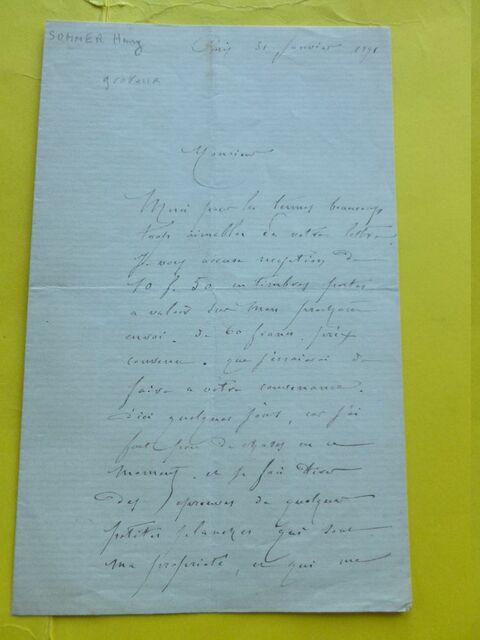 SOMMER Henry
graveur
Paris 31 Janvier 1891
Monsieur
Merci pour les termes beaucoup
trop aimables de votre lettre.
Je vous accuse reception de
10 f. 50 en timbres postes
a valoir sur mon prochain
envoi. de 60 francs. prix
convenu. que j'essaierai de
faire a votre convenance.
d'ici quelques jours, car j'ai
fort peu de choses en ce
moment, et je fais tirer
des epreuves de quelques
petites planches qui sont
ma propriété, et qui me